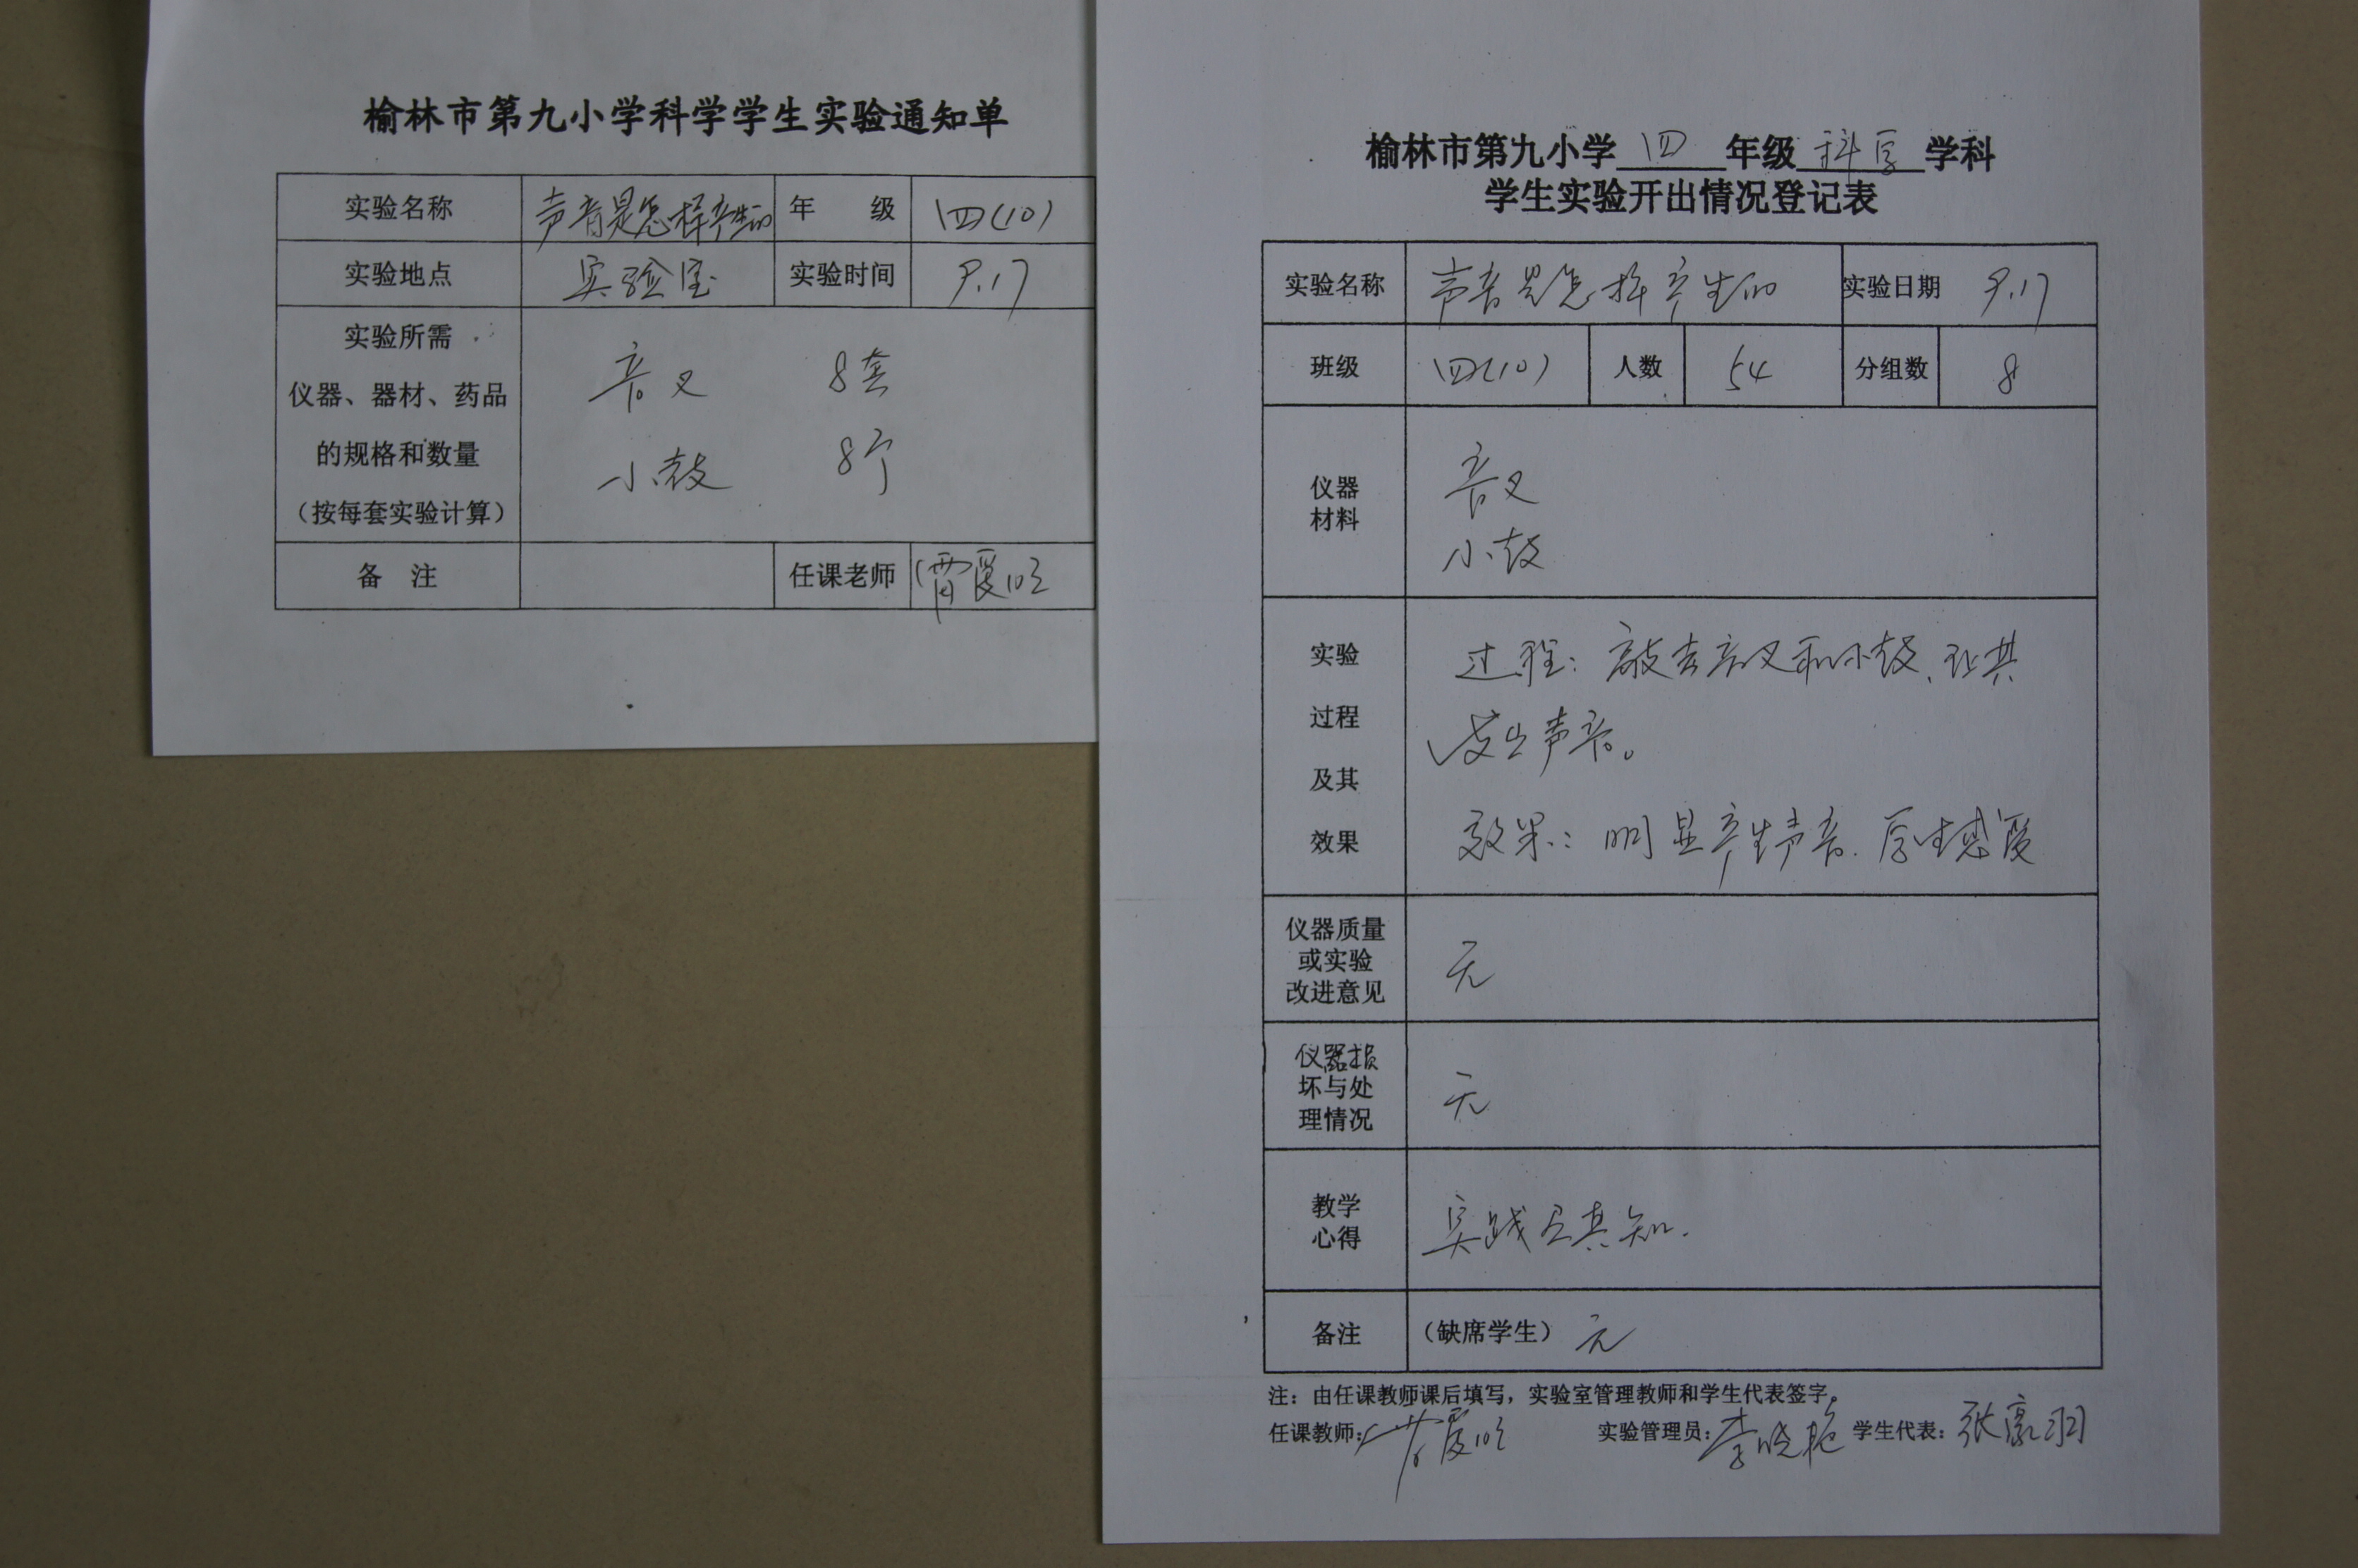 榆林市第九小学科学学生实验通知单
实验名称 声音是怎样产生的 年 级 四(10)
实验地点 实验室 实验时间 9.17
实验所需
仪器、器材、药品
的规格和数量
(按每套实验计算)
音叉 8套
小鼓 8个
备 注 任课老师
榆林市第九小学 四 年级 科学 学科
学生实验开出情况登记表
实验名称 声音是怎样产生的 实验日期 9.17
班级 四(10) 人数 54 分组数 8
仪器
材料
音叉
小鼓
实验
过程
及其
效果
过程:敲击音叉和小鼓、让其
发出声音。
效果:明显产生声音.学生感受
仪器质量
或实验
改进意见
无
仪器损
坏与处
理情况
无
教学
心得
实践出真知.
备注 (缺席学生) 无
注:由任课教师课后填写,实验室管理教师和学生代表签字。
任课教师: 实验管理员:李晓艳 学生代表:张豪羽